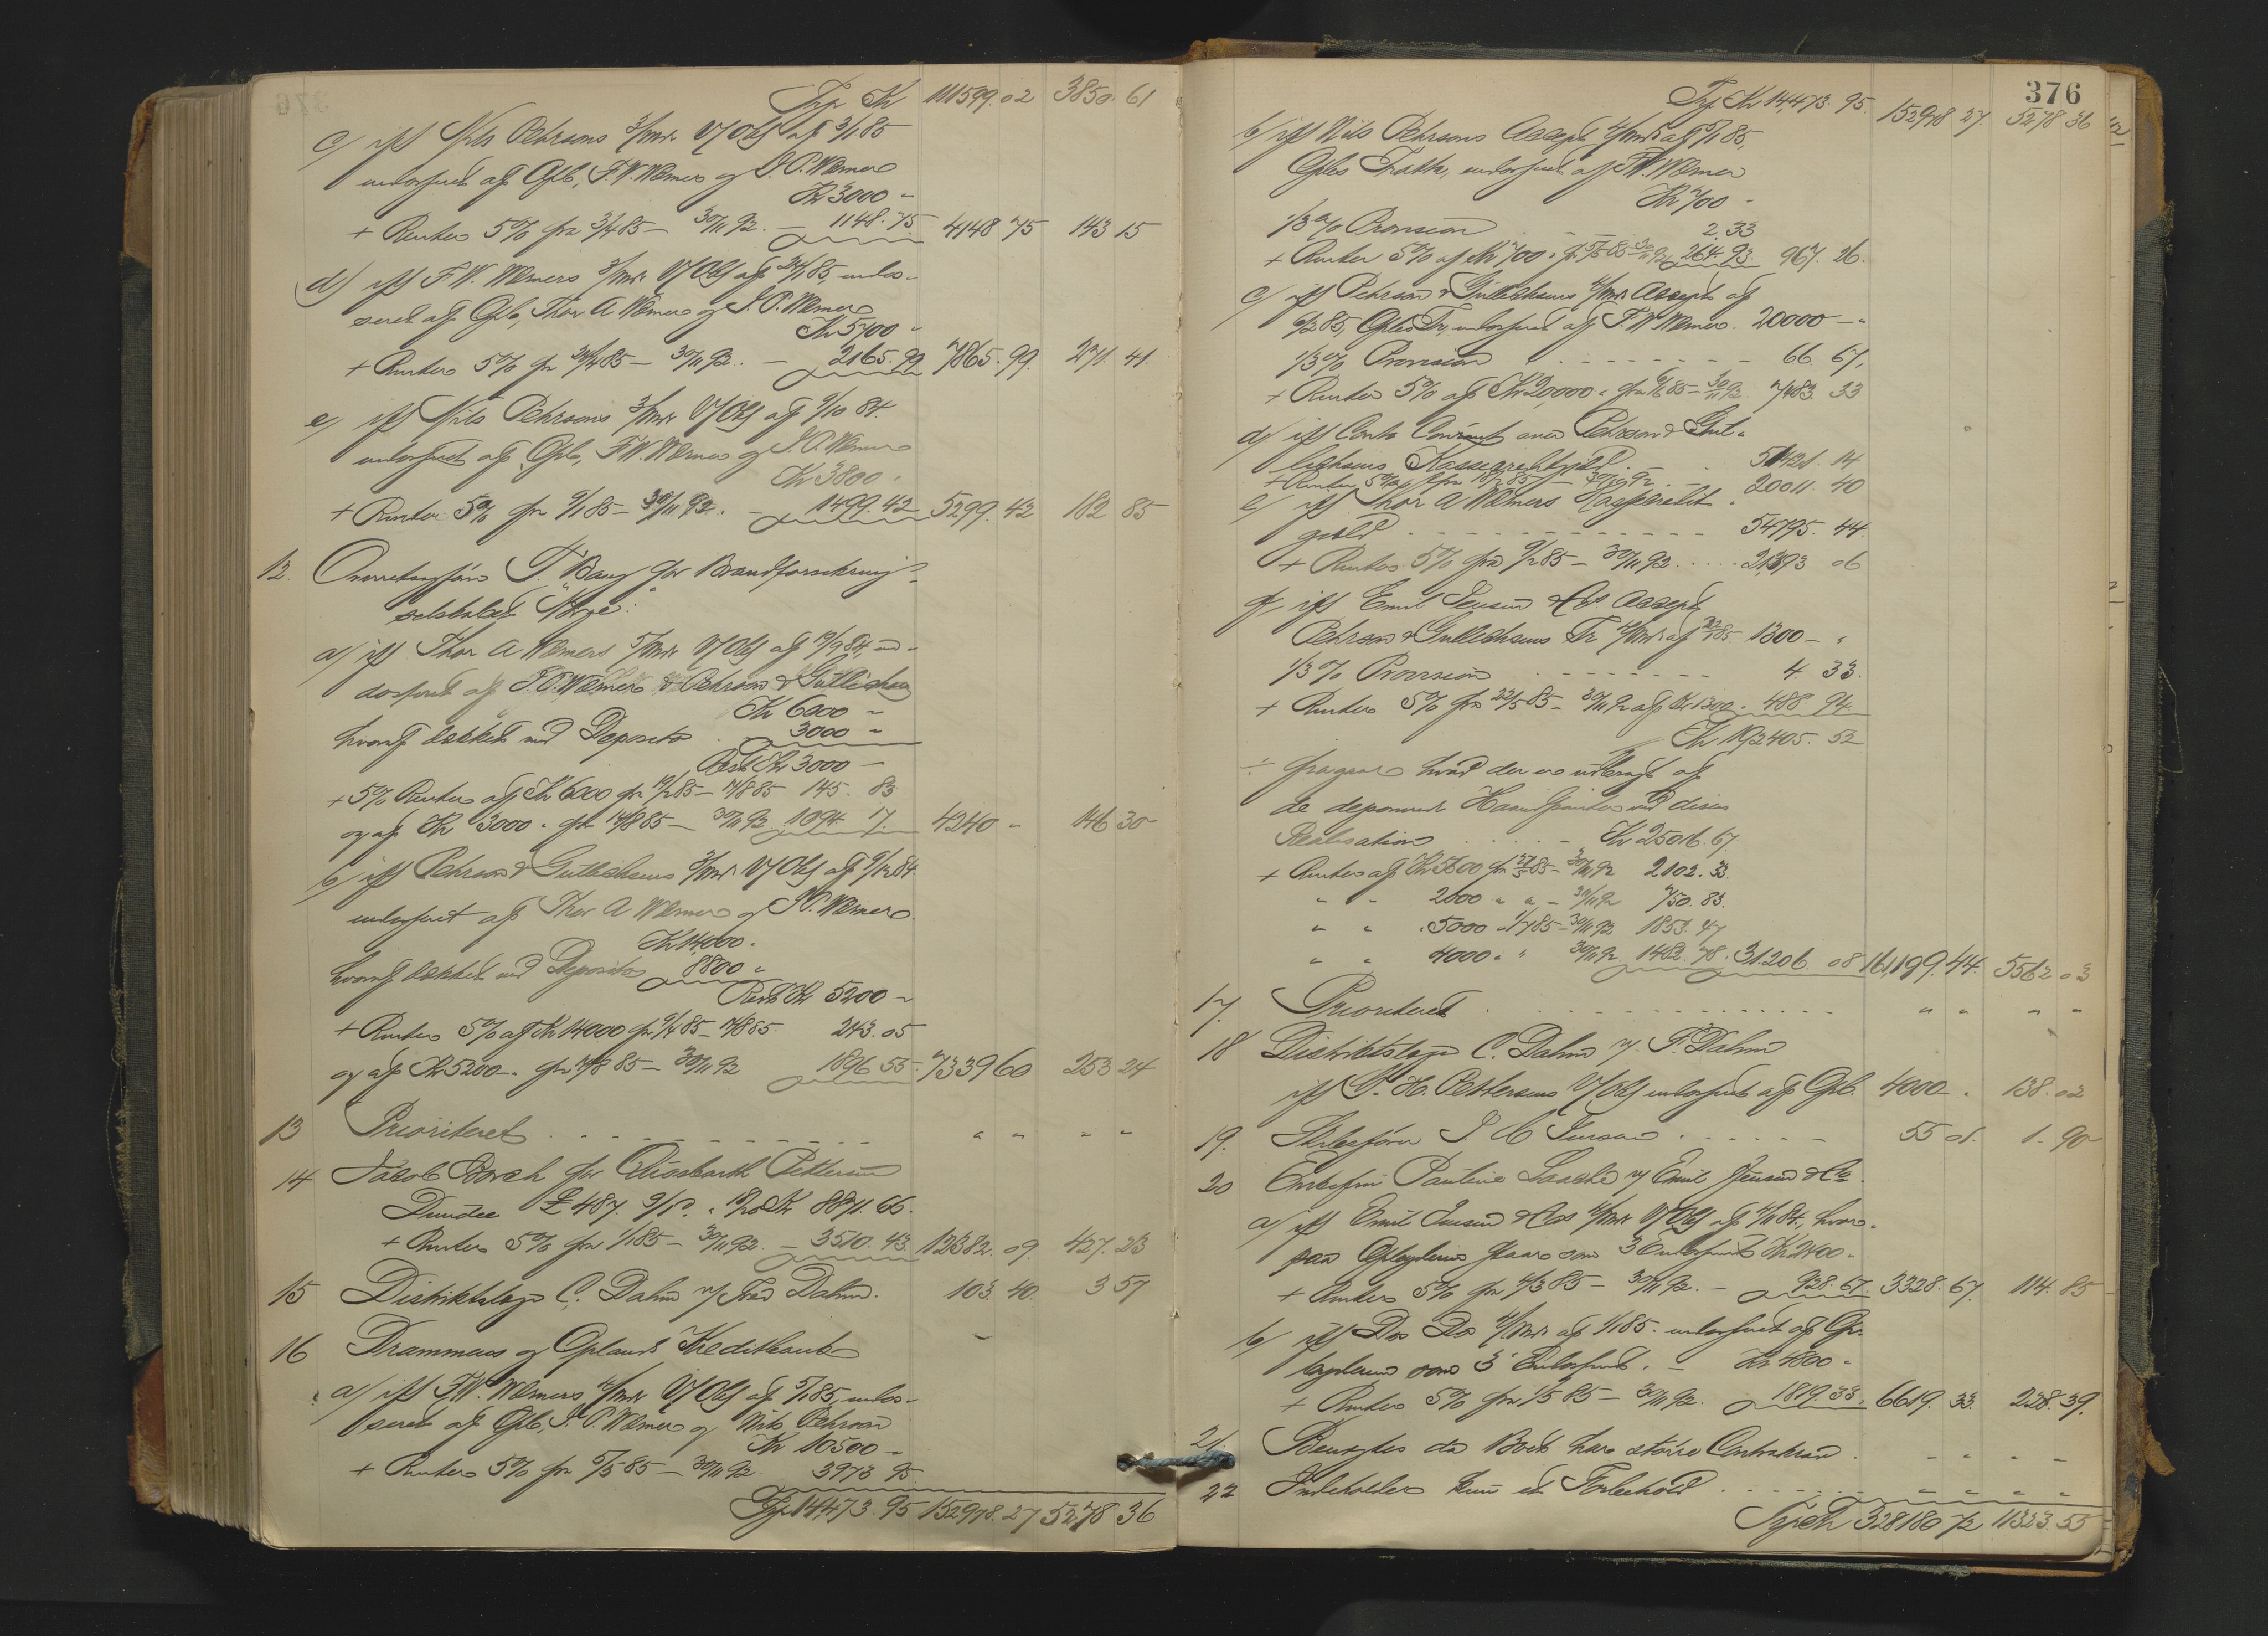 Trp Kr 111599.02 3850.61
c/ iflg Nils Pehrsons 3/mdr V/Obl af 3/1 85
endosseret af Opb, F. W. Wærner og J. P. Wærner
Kr 3000 "
+ Renter 5% fra 3/4 85 – 30/11 92. – 1148.75. 4148 75 143 15
d/ iflg F. W. Wærners 3/mdr V/Obl af 24/1 85, endos-
seret af Opb, Thor A Wærner og J. P. Wærner
Kr 5700 "
+ Renter 5% fr 24/4 85 – 30/11 92. – 2165.99 7865.99. 271.41.
e/ iflg Nils Pehrsons 3/mdr V/Obl af 9/10 84.
endosseret af Opb, F. W. Wærner og J. P. Wærner
Kr 3800 "
+ Renter 5% fr 9/1 85 – 30/11 92. – 1499.42 5299.42 182 85
12. Overretssagfører T. Bang for Brandforsikrings-
selskabet "Norge":
a/ iflg Thor A Wærners 5/mdr V/Obl af 19/9 84, en-
dosseret af J. P. Wærner & Pehrson & Gullichsen
Kr 6000 "
hvoraf dækket ved Deposito 3000 "
Rest Kr 3000 –
+ 5% Renter af Kr 6000 fr 19/2 85 – 14/8 85 145. 83
og af Kr 3000 " fr 14/8 85 – 30/11 92 1094 17. 4240 " 146 30
b/ iflg Pehrson & Gullichsens 3/mdr V/Obl af 9/12 84.
endosseret af Thor A Wærner og J. P. Wærner.
Kr 14,000 "
hvoraf dækket ved Deposito 8800 "
Rest Kr 5200 "
+ Renter 5% af Kr 14000 fr 9/4 85 – 14/8 85 243.05
og af Kr 5200 – " fr 14/8 85 – 30/11 92 1896 55. 7339 60 253 24
13 Prioriteret . – – – – – – " " " "
14 Jacob Borch for Pettersen
Dundee £ 487. 9/ Kr 8871.66.
+ Renter 5% fra 1/1 85 – 30/11 92. – 3510.43. 12382.09. 427.23
15 Distriktslæge C. Dahm v/ Fred Dahm. 103.40. 3 57
16 Drammens og Oplands Kreditbank
a/ iflg F. W. Wærners 4/mdr V/Obl af 5/1 85, endos-
seret af Opb, J. P. Wærner og Nils Pehrson
Kr 10500 "
+ Renter 5% fra 5/5 85 – 30/11 92. 3973 95.
Trp 14473.95 152978.27 5278 36
376
Trp Kr 14,473.95. 152978 27. 5278 36
b/ iflg Nils Pehrsons Accept 4/mdr af 5/1 85,
Opbs Tratta, endosseret af F. W. Wærner
Kr 700 "
1/3 % Provision 2.33
+ Renter 5% af Kr 700 " fr 5/5 85 – 30/11 92 264.93. 967. 26.
c/ iflg Pehrson & Gullichsens 4/mdr Accept af
6/2 85, Opbs Tr, endosseret af F. W. Wærner. 20000 – "
1/3 % Provision . – – – – – – 66. 67,
+ Renter 5% af Kr 20,000 " fra 6/6 85 – 30/11 92. 7483. 33
d/ iflg Conto Courant over Pehrson & Gul-
lichsens Kassekreditgjæld . – . 51421. 14
+ Renter 5% fra 18/2 85 – 30/11 92 . – 20011. 40
e/ iflg Thor A Wærners Kassekredit-
gjæld . – – – – – – – 54795. 44.
+ Renter 5% fra 9/2 85 – 30/11 92 . . . . 21393 06
f/ iflg Emil Jensen & Co Accept,
Pehrson & Gullichsens Tr 4/mdr af 22/1 85 1300 – "
1/3 % Provision . – – – – – 4. 33.
+ Renter 5% fra 22/5 85 – 30/11 92 af Kr 1300 – 488. 94
Kr 192405. 52
÷ fragaar hvad der er udbragt af
de deponerede Haandpanter ved disses
Realisation . . . . – Kr 25016.67.
+ Renter af Kr 5600 fr 27/5 85 – 30/11 92 2102.33.
" " 2000 " " – 30/11 92 750.83.
" " 5000 – 1/7 85 – 30/11 92 1853.47
" " 4000 " " 30/11 92 1482.78. 31.206.08 161,199.44. 5562 03
17. Prioriteret . – – – – – – – " " " "
18 Distriktslæge C. Dahm v/ F. Dahm
iflg P. H. Pettersens V/Obl endosseret af Opb. 4000 – " 138.02
19. Skibsfører J. C. Jensen . – – – – – 55 01. 1.90
20 Enkefru Pauline Saasche v/ Emil Jensen & Co.
a/ iflg Emil Jensen & Cos 4/mdr V/Obl af 4/11 84, hvor-
paa Opbyderne staar som 3 Endossent Kr 2400 "
+ Renter 5% fra 4/3 85 – 30/11 92. – 928.67. 3328.67. 114.85
b/ iflg Dos Do 4/mdr af 1/1 85. endosseret af Op-
byderne som 3 Endossent. – Kr 4800 "
+ Renter 5% fra 1/5 85 – 30/11 92. 1819.33. 6619.33. 228.39.
21. Benægtes da Boet har større Contrakrav . – " – "
22 Indeholder kun et Forbehold . – – – – " " " "
Trp Kr 328180 72 11323.55